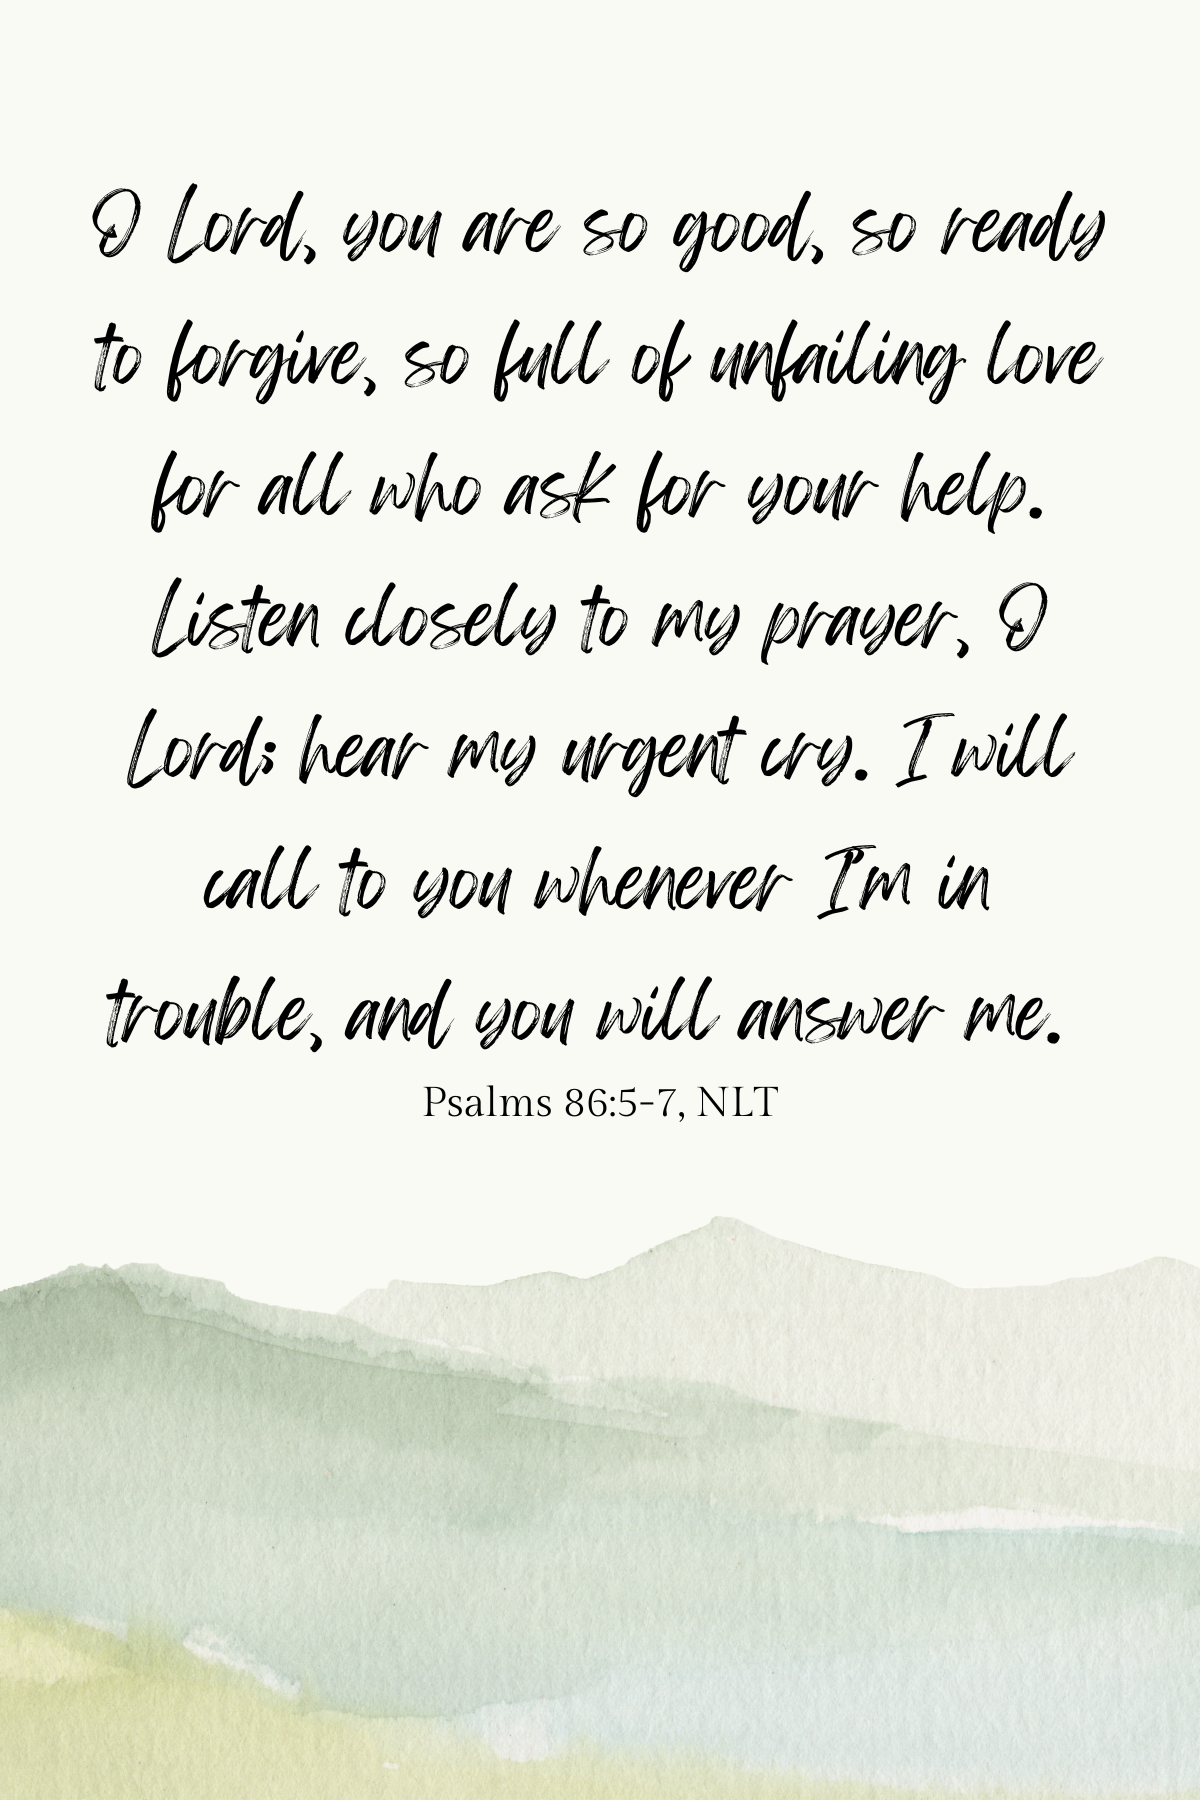 O Lord, you are so good, so ready
to forgive, so full of unfailing love
for all who ask for your help.
Listen closely to my prayer, O
Lord; hear my urgent cry. I will
call to you whenever I'm in
trouble, and you will answer me.
Psalms 86:5-7, NLT